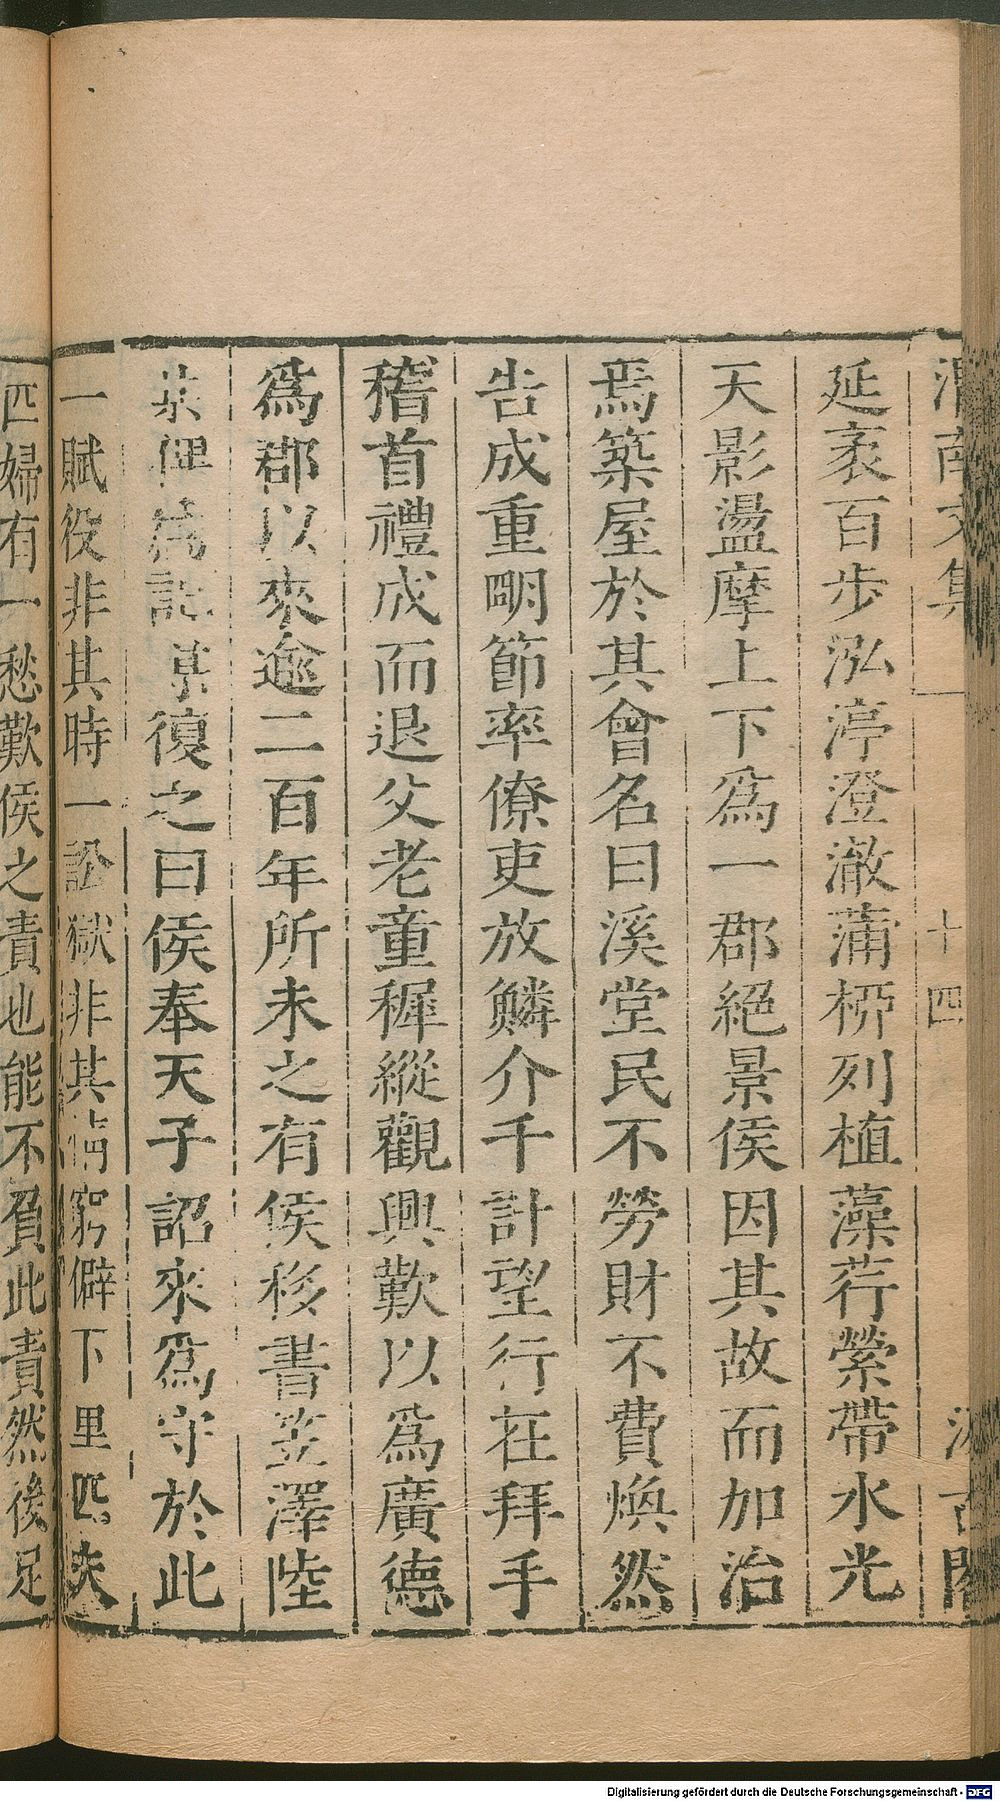 渭南文集 十四 汲古閣
延袤百步泓渟澄澈蒲柳列植藻荇縈帶水光
天影盪摩上下爲一郡絕景侯因其故而加治
焉築屋於其會名曰溪堂民不勞財不費煥然
告成重明節率僚吏放鱗介千計望行在拜手
稽首禮成而退父老童穉縱觀興歎以爲廣德
爲郡以來逾二百年所未之有侯移書笠澤陸
某俾爲記某復之曰侯奉天子詔來爲守於此
一賦役非其時一訟獄非其情窮僻下里匹夫
匹婦有一愁歎侯之責也能不負此責然後足
Digitalisierung gefördert durch die Deutsche Forschungsgemeinschaft - DFG